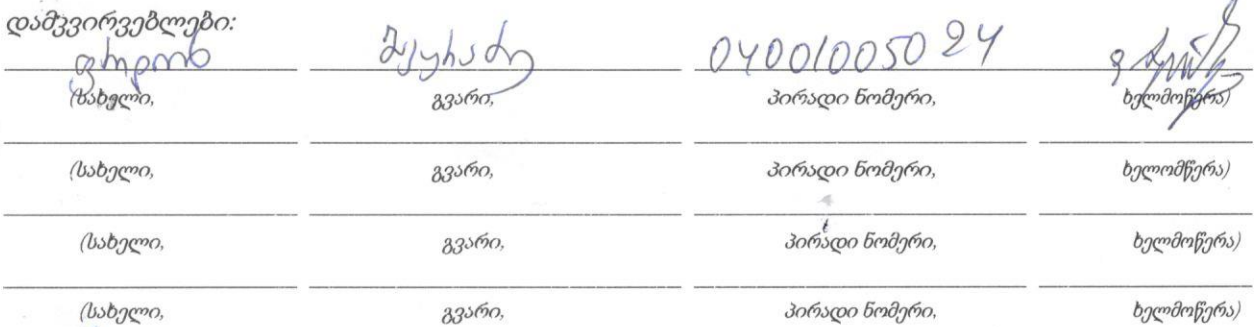 დამკვირვებლები:
ფრიდონ 04001005024
(სახელი, გვარი, პირადი ნომერი, ხელმოწერა)
(სახელი, გვარი, პირადი ნომერი, ხელომწერა)
(სახელი, გვარი, პირადი ნომერი, ხელმოწერა)
(სახელი, გვარი, პირადი ნომერი, ხელმოწერა)